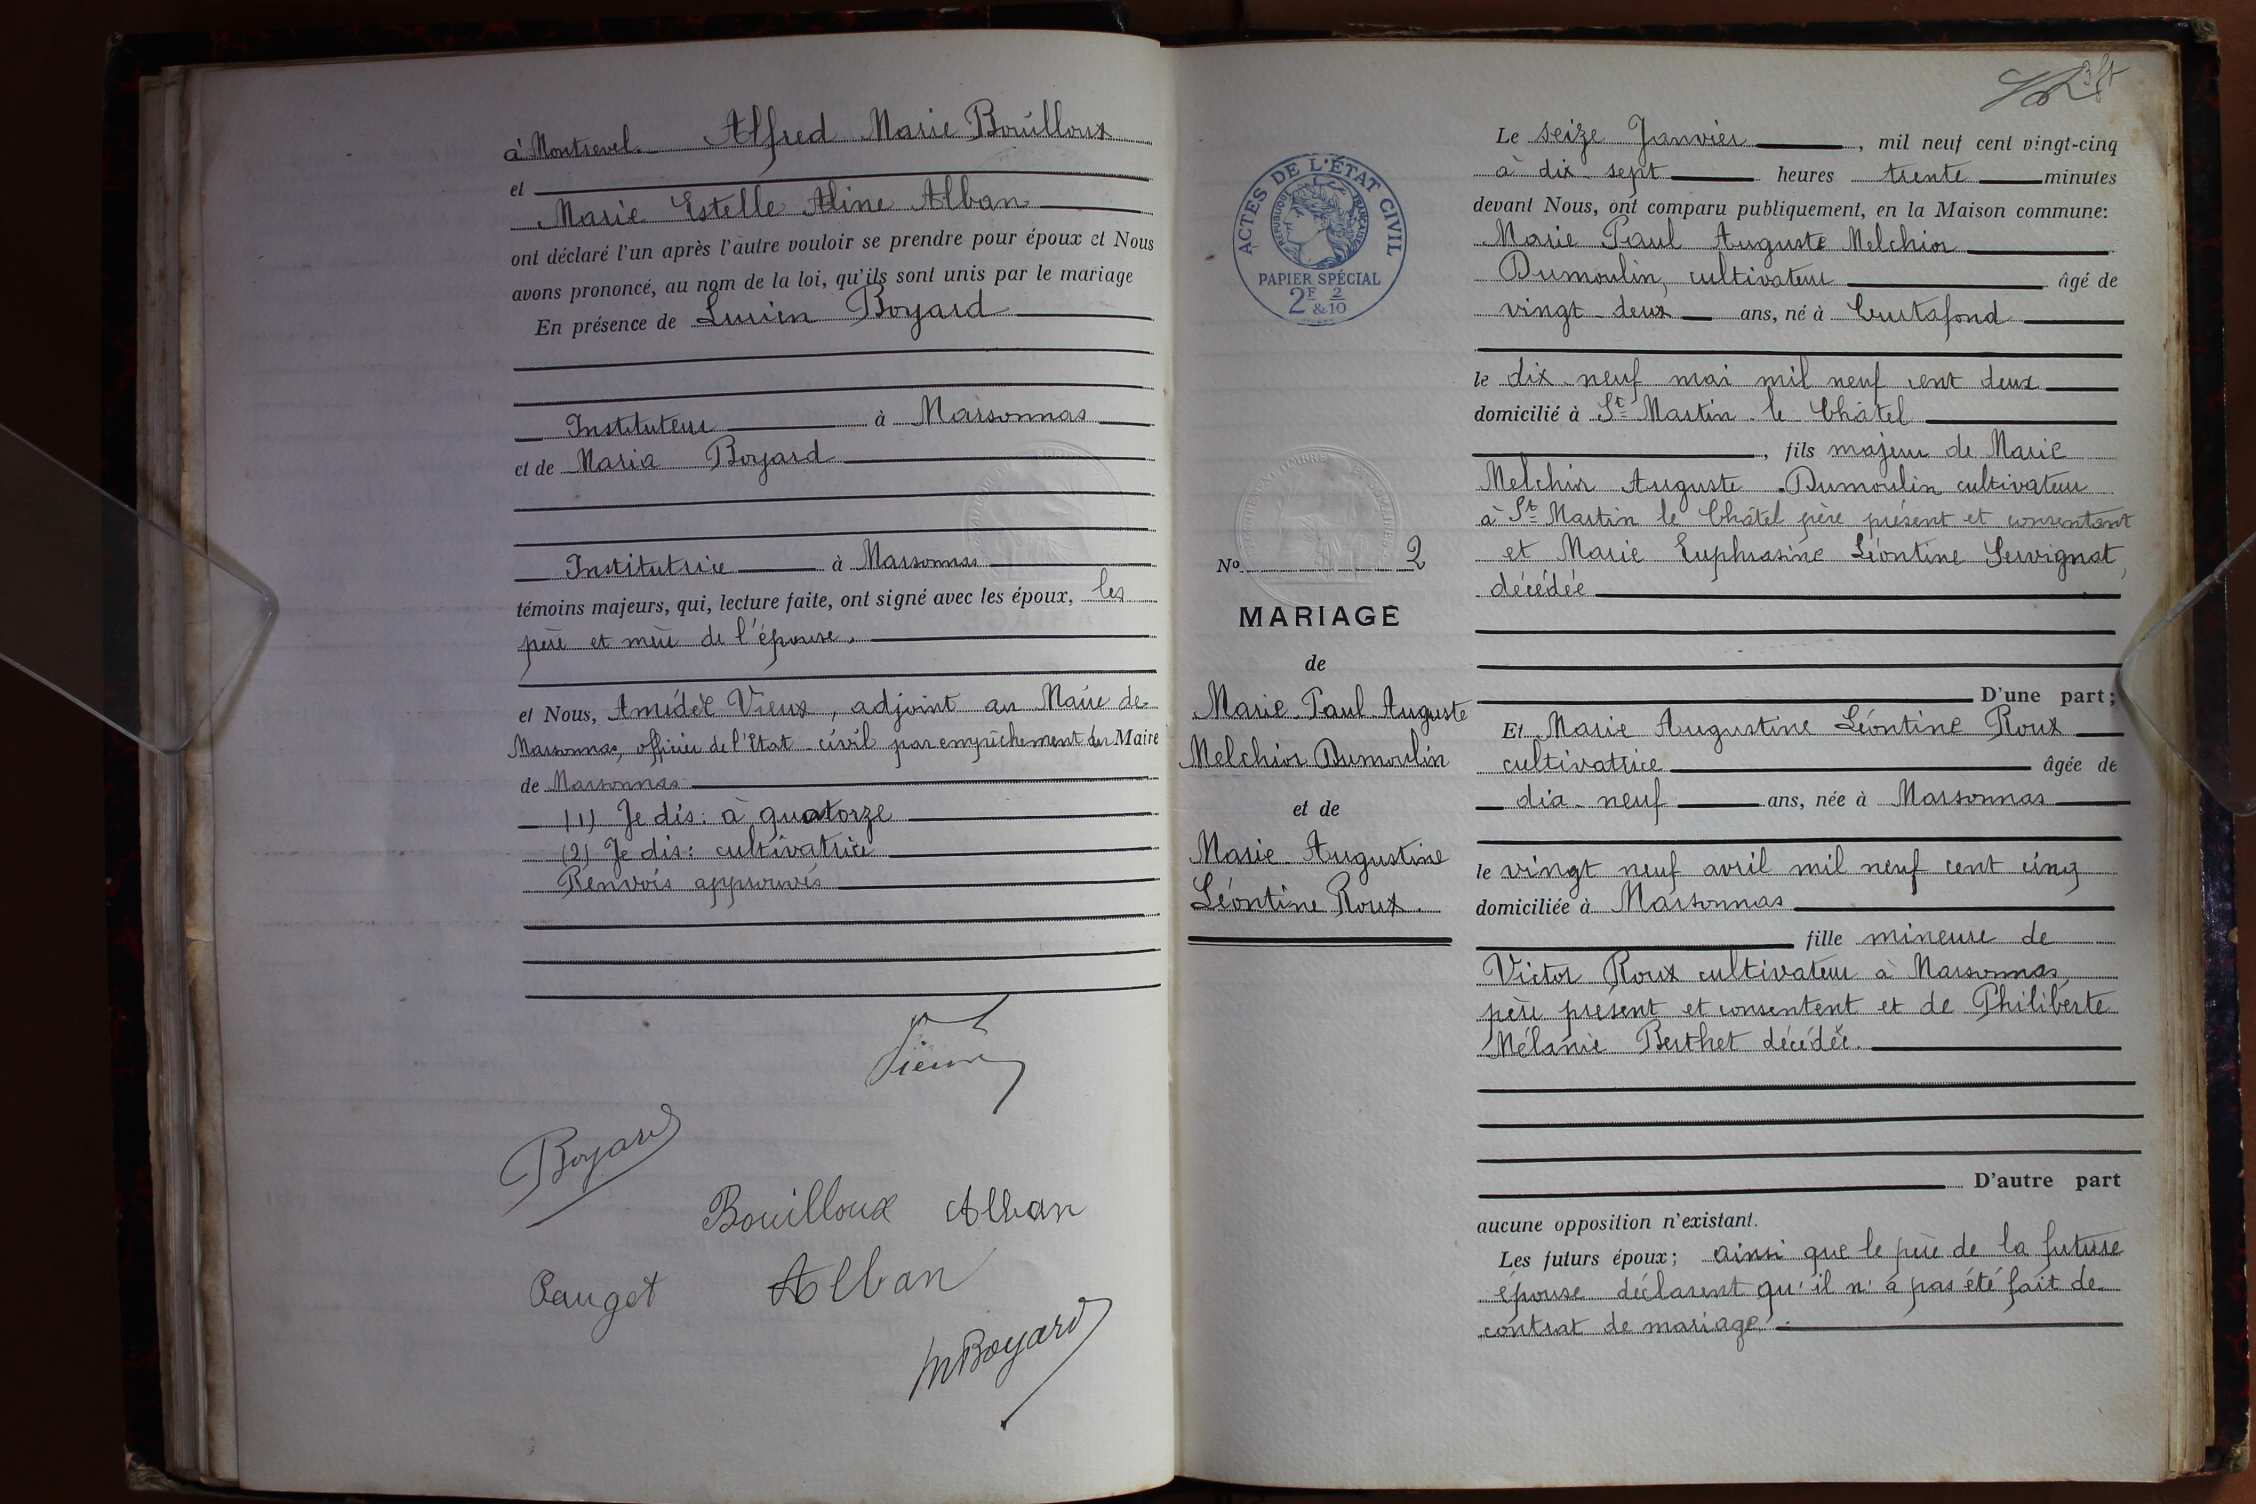 à Montrevel. Alfred Marie Bouilloux
et
Marie Estelle Aline Alban
ont déclaré l'un après l'autre vouloir se prendre pour époux et Nous
avons prononcé, au nom de la loi, qu'ils sont unis par le mariage
En présence de Lucien Boyard
Instituteur à Marsonnas
et de Maria Boyard
Institutrice à Marsonnas
témoins majeurs, qui, lecture faite, ont signé avec les époux, les
père et mère de l'épouse.
et Nous, Amédée Vieux, adjoint au Maire de
Marsonnas, officier de l'Etat-civil par empêchement du Maire
de Marsonnas
(1) Je dis: à quatorze
(2) Je dis: cultivatrice
Renvois approuvés
Vieux
Boyard
Bouilloux Alban
Pauget Alban
M Boyard
ACTES DE L'ÉTAT CIVIL
RÉPUBLIQUE FRANÇAISE
PAPIER SPÉCIAL
2F & 2/10
No 2
MARIAGE
de
Marie Paul Auguste
Melchior Dumoulin
et de
Marie Augustine
Léontine Roux.
Le seize Janvier, mil neuf cent vingt-cinq
à dix-sept heures trente minutes
devant Nous, ont comparu publiquement, en la Maison commune:
Marie Paul Auguste Melchior
Dumoulin, cultivateur âgé de
vingt-deux ans, né à Curtafond
le dix-neuf mai mil neuf cent deux
domicilié à St Martin le Châtel
, fils majeur de Marie
Melchior Auguste Dumoulin cultivateur
à St Martin le Châtel père présent et consentant
et Marie Euphrasine Léontine Servignat,
décédée
D'une part;
Et Marie Augustine Léontine Roux
cultivatrice âgée de
dix-neuf ans, née à Marsonnas
le vingt neuf avril mil neuf cent cinq
domiciliée à Marsonnas
fille mineure de
Victor Roux cultivateur à Marsonnas,
père présent et consentent et de Philiberte
Mélanie Berthet décédée.
D'autre part
aucune opposition n'existant.
Les futurs époux; ainsi que le père de la future
épouse déclarent qu'il n'a pas été fait de
contrat de mariage.